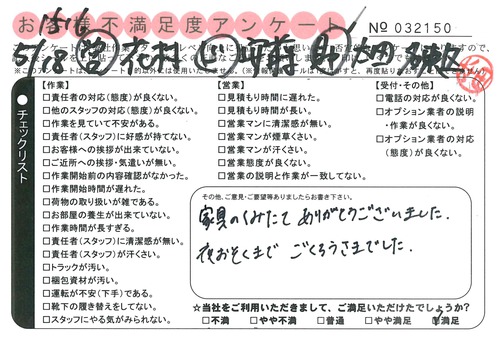 お客様不満足度アンケート
No 032150
チェックリスト
【作業】
□責任者の対応(態度)が良くない。
□他のスタッフの対応(態度)が良くない。
□作業を見ていて不安がある。
□責任者(スタッフ)に好感が持てない。
□お客様への挨拶が出来ていない。
□ご近所への挨拶・気遣いが無い。
□作業開始前の内容確認がなかった。
□作業開始時間が遅れた。
□荷物の取り扱いが雑である。
□お部屋の養生が出来ていない。
□作業時間が長すぎる。
□責任者(スタッフ)に清潔感が無い。
□責任者(スタッフ)が汗くさい。
□トラックが汚い。
□梱包資材が汚い。
□運転が不安(下手)である。
□靴下の履き替えをしてない。
□スタッフにやる気がみられない。
【営業】
□見積もり時間に遅れた。
□見積もり時間が長い。
□営業マンに清潔感が無い。
□営業マンが煙草くさい。
□営業マンが汗くさい。
□営業態度が良くない。
□営業の説明と作業が一致してない。
【受付・その他】
□電話の対応が良くない。
□オプション業者の説明
・作業が良くない。
□オプション業者の対応
(態度)が良くない。
その他、ご意見・ご要望等ありましたらお書き下さい。
家具のくみたて ありがとうございました.
夜おそくまで ごくろうさまでした.
☆当社をご利用いただきまして、ご満足いただけたでしょうか?
□不満 □やや不満 □普通 □やや満足 □満足